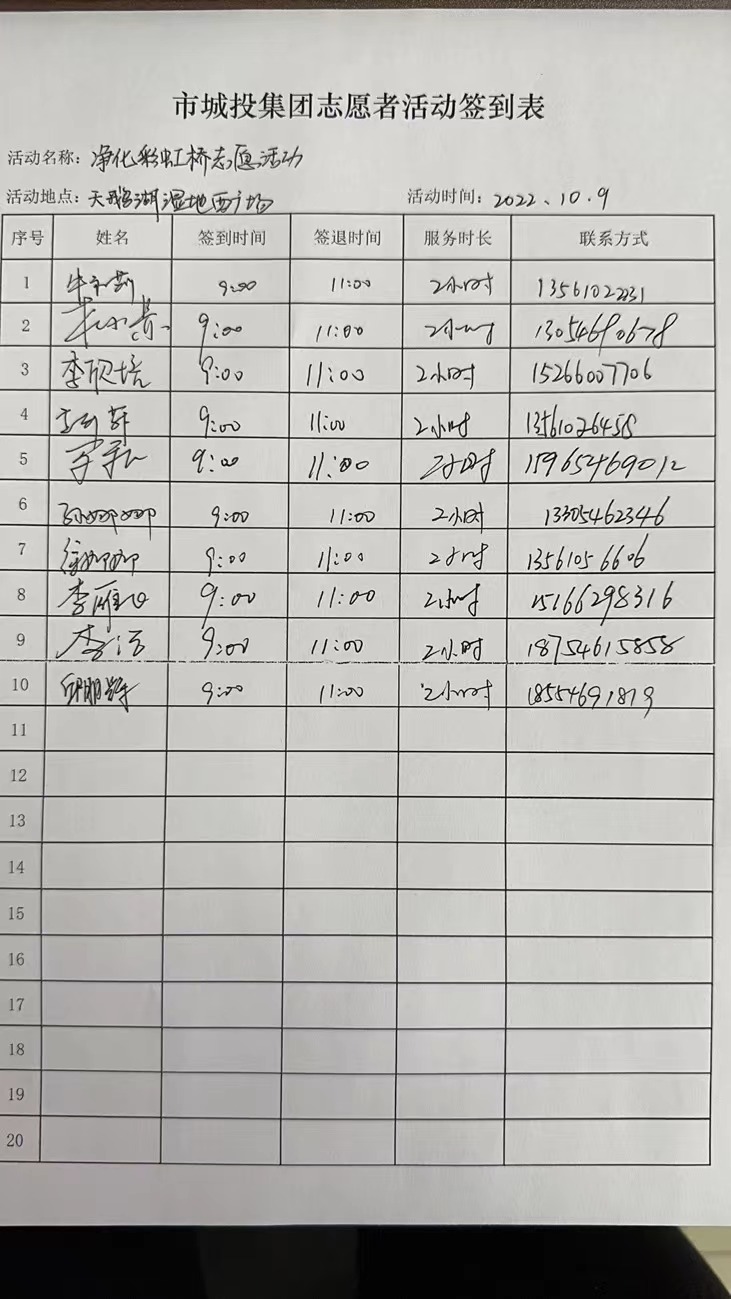 市城投集团志愿者活动签到表
活动名称：净化彩虹桥志愿活动
活动地点：天鹅湖湿地西广场 活动时间：2022.10.9
序号 姓名 签到时间 签退时间 服务时长 联系方式
1 9:00 11:00 2小时 13561022231
2 9:00 11:00 2小时 13054690678
3 李欣培 9:00 11:00 2小时 15266007706
4 9:00 11:00 2小时 13561026458
5 9:00 11:00 2小时 15965469012
6 孙娜娜 9:00 11:00 2小时 13305462346
7 徐娜娜 9:00 11:00 2小时 13561056606
8 李雁 9:00 11:00 2小时 15166298316
9 李洁 9:00 11:00 2小时 18754615858
10 9:00 11:00 2小时 18554691819
11
12
13
14
15
16
17
18
19
20